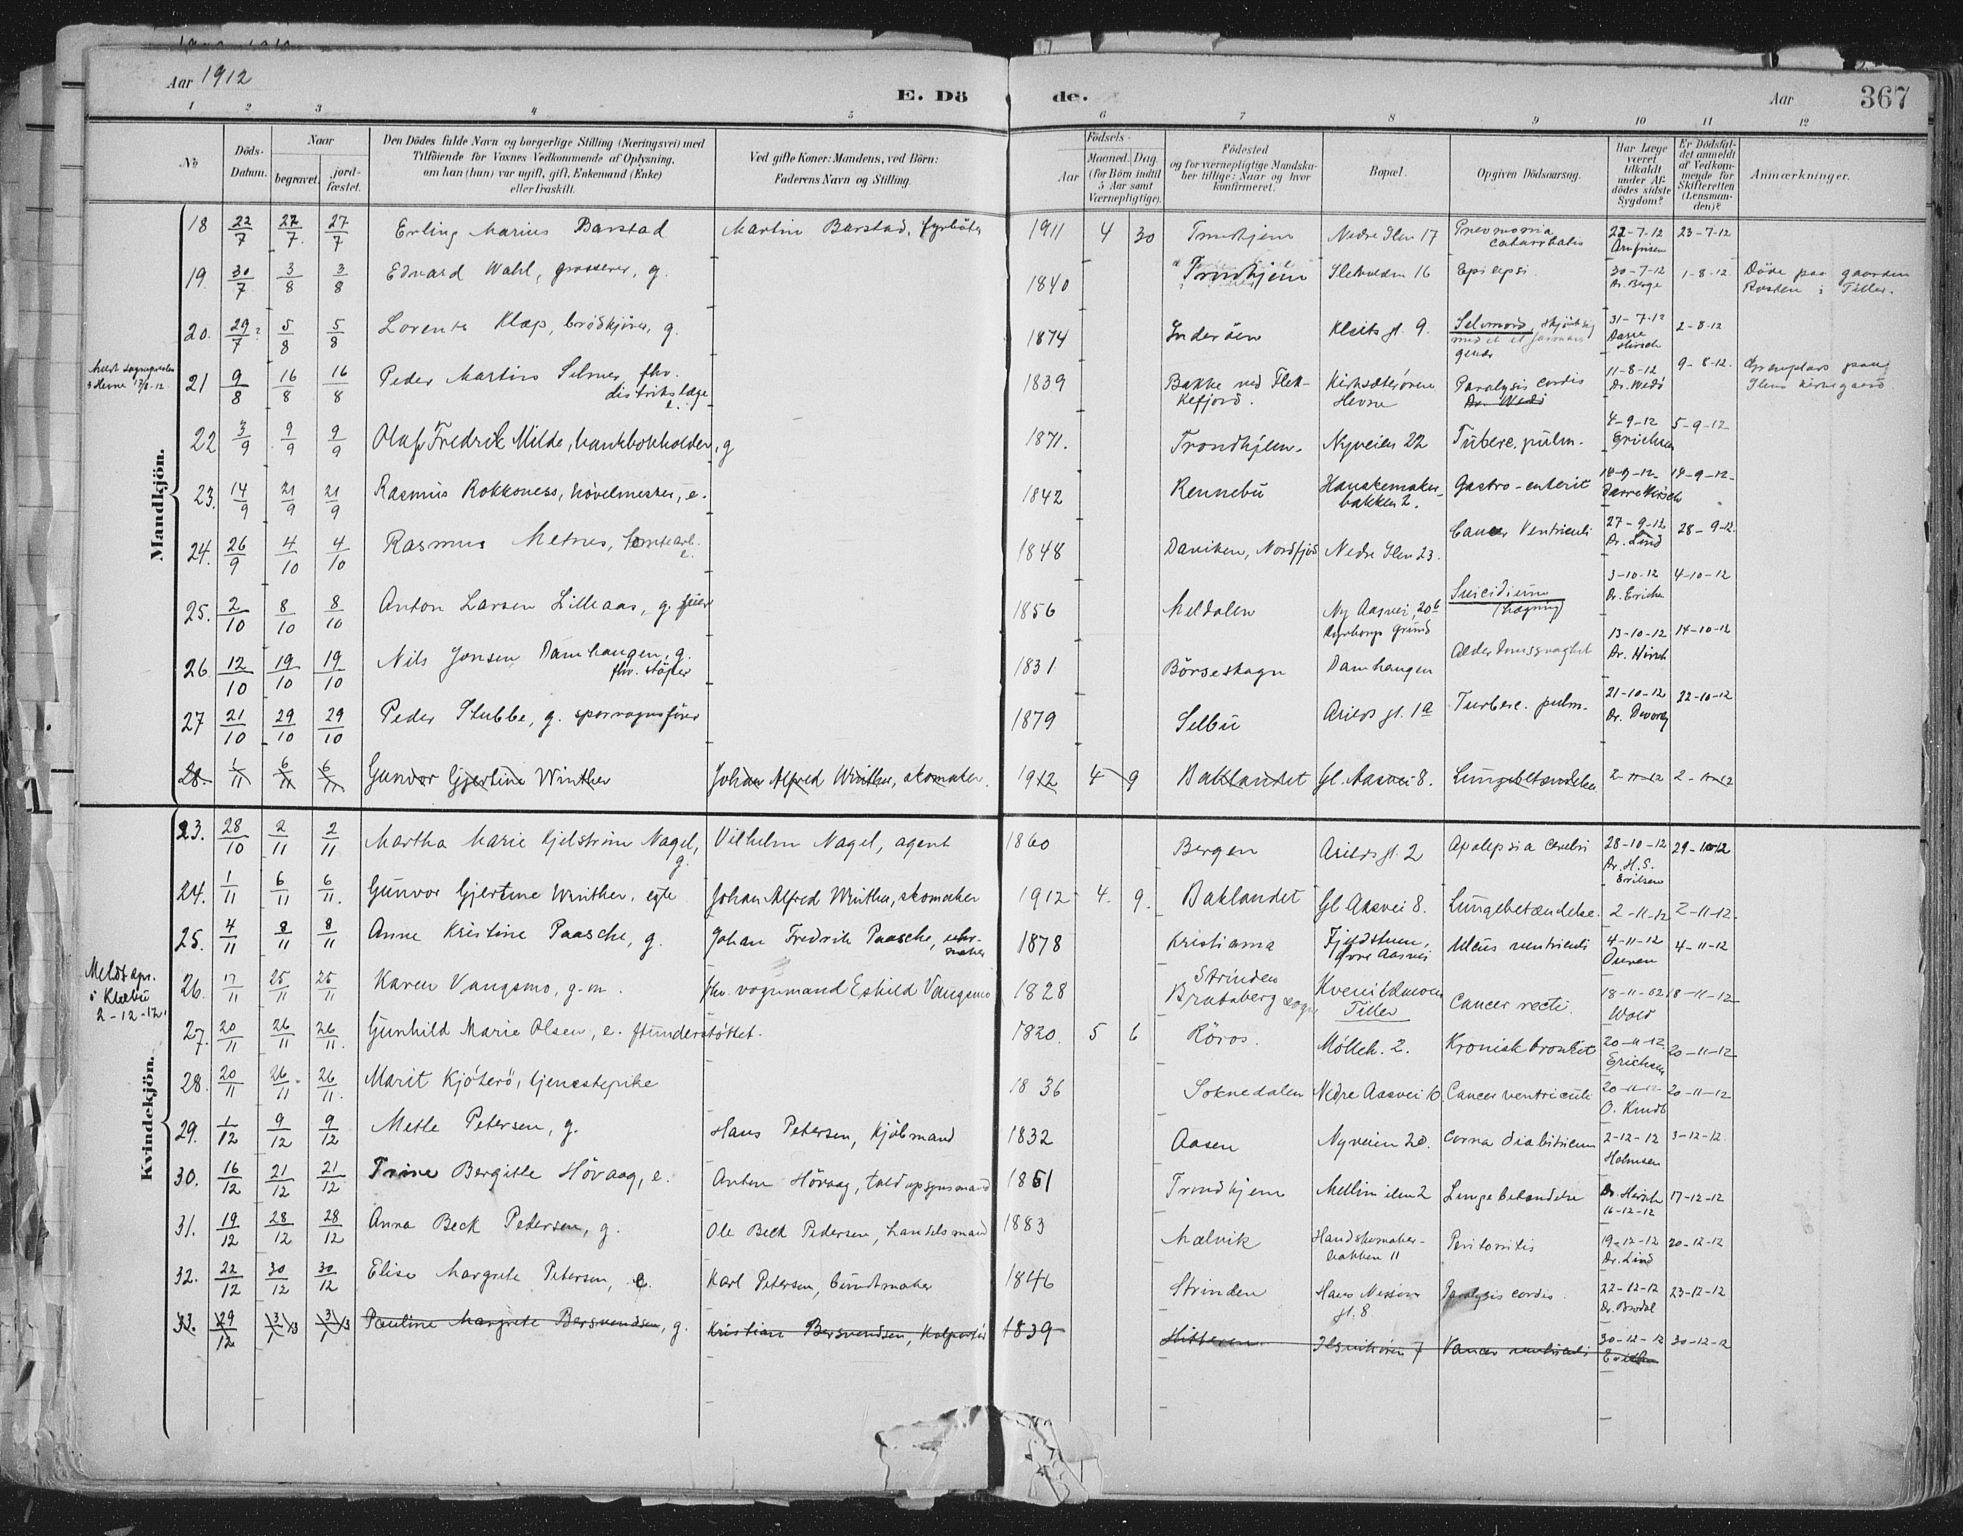 Aar 1912
E. Döde.
Aar
367
1 2 3 4 5 6 7 8 9 10 11 12
No
Döds-Datum.
Naar
begravet.
jordfæstet.
Den Dödes fulde Navn og borgerlige Stilling (Næringsvei) med
Tilföiende for Voxnes Vedkommende af Oplysning,
om han (hun) var ugift, gift, Enkemand (Enke)
eller fraskilt.
Ved gifte Koner: Mandens, ved Börn:
Faderens Navn og Stilling.
Födsels-
Aar
Maaned. Dag.
(for Börn indtil
5 Aar samt
Værnepligtige).
Födested
og for værnepligtige Mandska-
ber tillige: Naar og hvor
konfirmeret.
Bopæl.
Opgiven Dödsaarsag.
Har Læge
været
tilkaldt
under Af-
dödes sidste
Sygdom?
Er Dödsfal-
det anmeldt
af Vedkom-
mende for
Skifteretten
(Lensman-
den)?
Anmærkninger.
Mandkjön.
18 22/7 27/7 27/7 Erling Marius Barstad Martin Barstad, fyrböter 1911 4 30 Trondhjem Nedre Ilen 17 Pneumonia catarrhalis 22-7-12 23-7-12
19 30/7 3/8 3/8 Edvard Wahl, grosserer, g. 1840 Trondhjem Ilevolden 16 Epilepsi. 30-7-12 Dr. Berge 1-8-12 Döde paa gaarden Rosten i Tiller.
20. 29/7? 5/8 5/8 Lorents Klæp, brödkjörer, g. 1874 Inderöen Kleists gt. 9. Selvmord, skjöt sig med et 31-7-12 2-8-12
Meldt sognepresten i Hevne 17/8-12
21 9/8 16/8 16/8 Peder Martin Selmer, fhv. distriktslæge e. 1839 Bakke ved Flekkefjord. Kirksæterören Hevne Paralysis cordis Dr. Wedö 11-8-12 Dr. Wedö 9-8-12. Ilens kirkegaard
22 3/9 9/9 9/9 Olaf Fredrik Milde, bankbokholder, g 1871. Trondhjem. Nyveien 22 Tuberc. pulm. 4-9-12 Erichsen 5-9-12
23. 14/9 21/9 21/9 Rasmus Rokkoness, hövelmester, e. 1842 Rennebu Hanskemakerbakken 2. Gastro-enterit 14-9-12 14-9-12
24. 26/9 4/10 4/10 Rasmus Metnes, e. 1848 Daviken, Nordfjord Nedre Ilen 23. Cancer Ventriculi 27-9-12 Dr. Lind 28-9-12.
25. 2/10 8/10 8/10 Anton Larsen Lilleaas, g. 1856 Meldalen Ny Aasvei, 20b grund Suicidium (hægning) 3-10-12 4-10-12
26. 12/10 19/10 19/10 Nils Jonsen Damhaugen, g. fhv. stöper 1831 Börseskogn Damhaugen Alderdomssvaghet 13-10-12 Dr. Hirsch 14-10-12
27 21/10 29/10 29/10 Peder Stubbe, g. sporvognsförer 1879 Selbu Arilds gt. 1a Turberc. pulm. 21-10-12 22-10-12
28. 1/11 6/11 6/11 Gunvor Gjertine Winther Johan Alfred Winther, skomaker. 1912 4 9 Baklandet Gl. Aasvei 8. Lungebetændelse 2-11-12 2-11-12
Kvindekjön.
23. 28/10 2/11 2/11 Martha Marie Kjelström Nagel, g. Vilhelm Nagel, agent 1860 Bergen Arilds gt. 2 Apolepsia cerebri 28-10-12 Dr. H. S. 29-10-12
24. 1/11 6/11 6/11. Gunvor Gjertine Winther, egte Johan Alfred Winther, skomaker 1912 4. 9. Baklandet Gl Aasvei 8. Lungebetændelse. 2-11-12 2-11-12.
25. 4/11 8/11 8/11 Anne Kristine Paasche, g. Johan Fredrik Paasche, uhrmaker 1878 Kristiania Fjeldstuen, övre Aasvei Ulcus ventriculi 4-11-12 4-11-12
Meldt spr. i Klæbu 2-12-12.
26. 17/11 25/11 25/11 Karen Vangsmo, g.m. fhv. vognmand Eskild Vangsmo 1828 Strinden Bratsberg sogn Tiller Cancer recti. 18-11-02 Wold 18-11-12
27. 20/11 26/11 26/11. Gunhild Marie Olsen, e. ftunderstöttet. 1820. 5 6 Röros. Mölleb. 2. Kronisk bronkit 20-11-12. Erichsen 20-11-12
28. 20/11 26/11 26/11. Marit Kjöterö, tjenestepike 1836 Soknedalen Nedre Aasvei 10. Cancer ventriculi 20-11-12 20-11-12
29. 1/12 9/12 9/12 Mette Petersen, g. Hans Petersen, kjöbmand 1832 Aasen Nyveien 20. Coma diabiticum 2-12-12 Holmsen 3-12-12.
30. 16/12 21/12 21/12 Trine Bergitte Hövaag, e. Anton Hövaag, toldopsynsmand 1851 Trondhjem Mellem ilen 2 Lungebetendelse Dr. Hirsch 16-12-12 17-12-12
31. 19/12 28/12 28/12 Anna Beck Pedersen, g. Ole Beck Pedersen, handelsmand 1883 Malvik Handskemakerbakken 11 Peritonitis 19-12-12 Dr. Lind 20-12-12
32. 22/12 30/12 30/12 Elise Margrete Petersen, e. Karl Petersen, buntmaker 1846 Strinden Hans Nissens gt. 8 Paralysis cordis. 22-12-12 23-12-12
33. 29/12 3/1 13 3/1 13 Pauline Margrete Bersvendsen, g. Kristian Bersvendsen, Kolportör 1839 Hitteren Ilsvikören 7 Cancer ventriculi 30-12-12 30-12-12